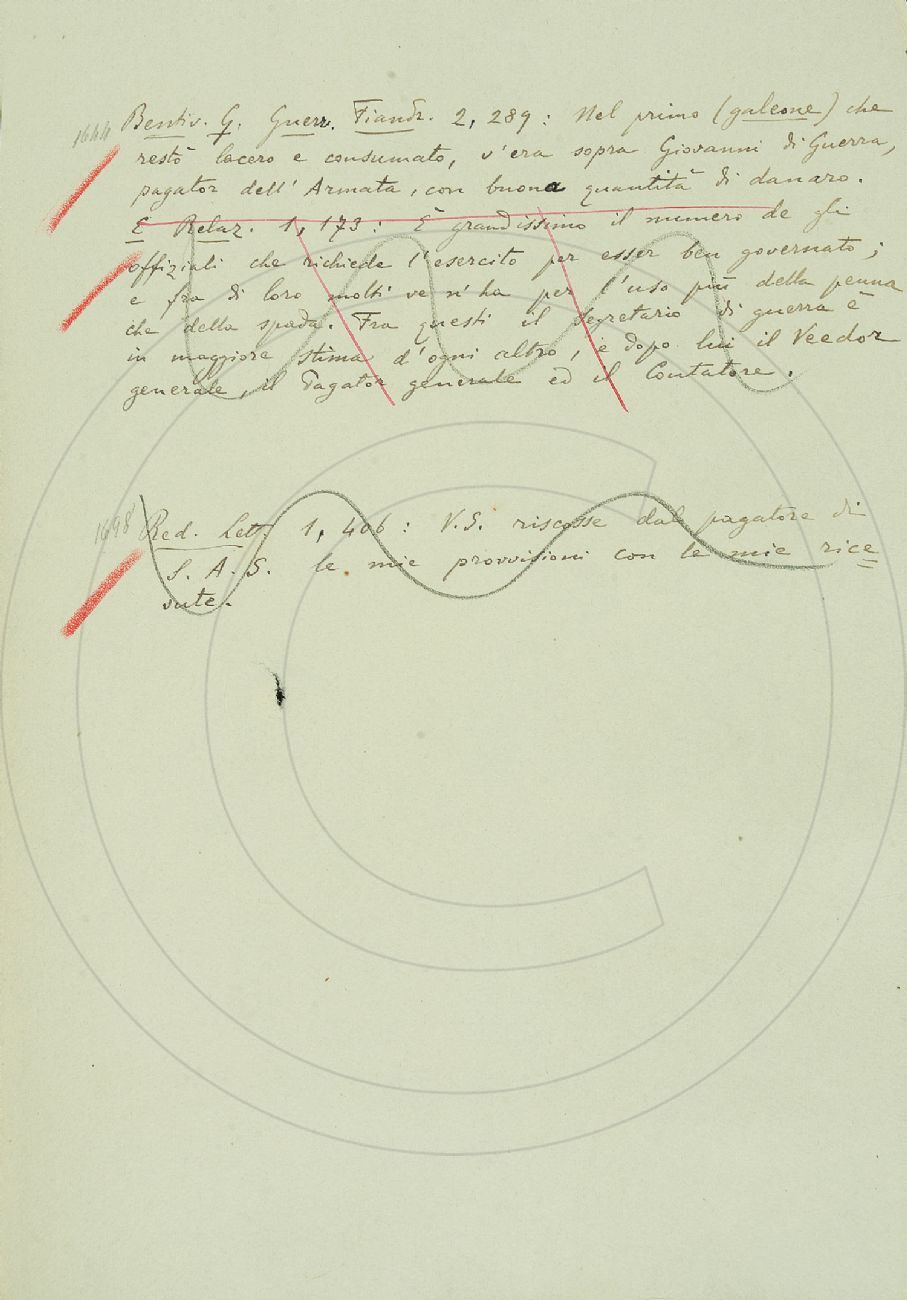 1644 Bentiv. G. Guerr. Fiandr. 2, 289: Nel primo (galeone) che
restò lacero e consumato, v'era sopra Giovanni di Guerra,
pagator dell'Armata, con buona quantità di danaro.
E Relaz. 1, 173: È grandissimo il numero de gli
offiziali che richiede l'esercito per esser ben governato;
e fra di loro molti ve n'ha per l'uso più della penna
che della spada. Fra questi il segretario di guerra è
in maggiore stima d'ogni altro, e dopo lui il Veedor
generale, il Pagator generale ed il Contatore.
1698 Red. Lett. 1, 406: V.S. riscosse dal pagatore di
S. A. S. le mie provvisioni con le mie rice
vute.